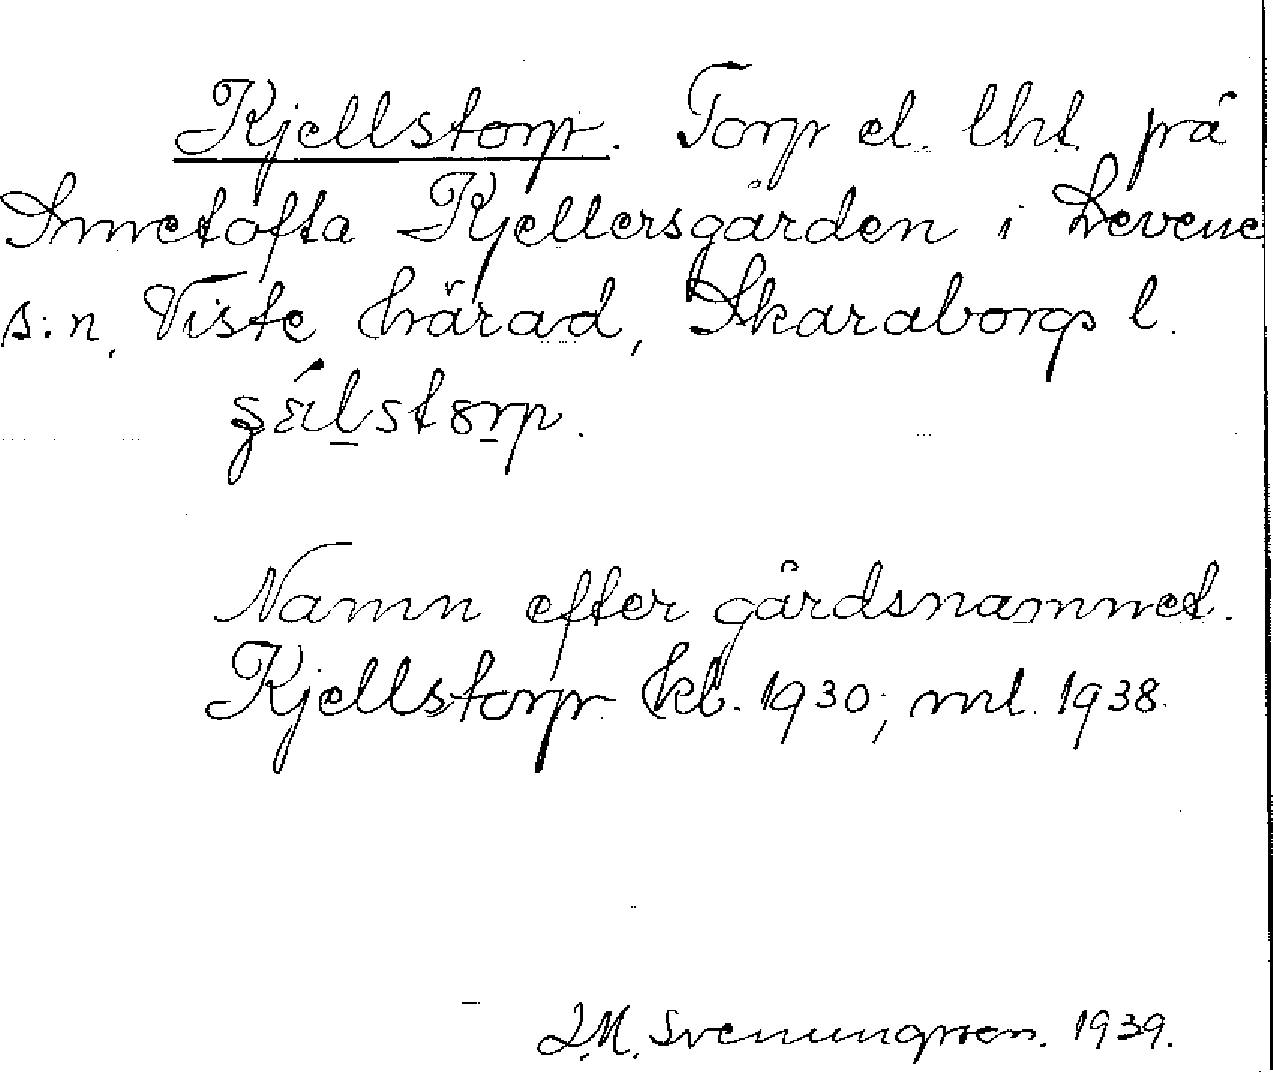 Kjellstorp. Torp el. lht på
Smetofta Kjellersgården i Levene
s:n, Viste härad, Skaraborgs l.
Namn efter gårdsnamnet.
Kjellstorp kb. 1930; ml. 1938.
J.M. Svenungsson. 1939.